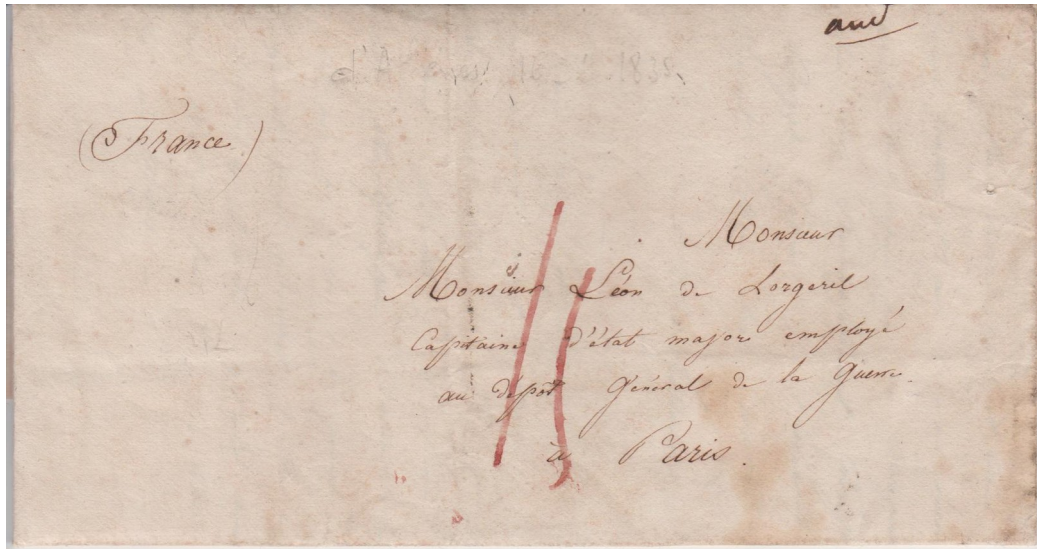 aus
(France)
Monsieur
Monsieur Léon de Lorgeril
Capitaine d'état major employé
au dépôt Général de la Guerre
à Paris.